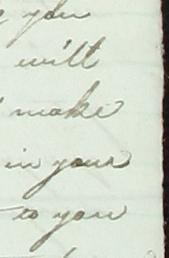 you
will
make
in your
to you